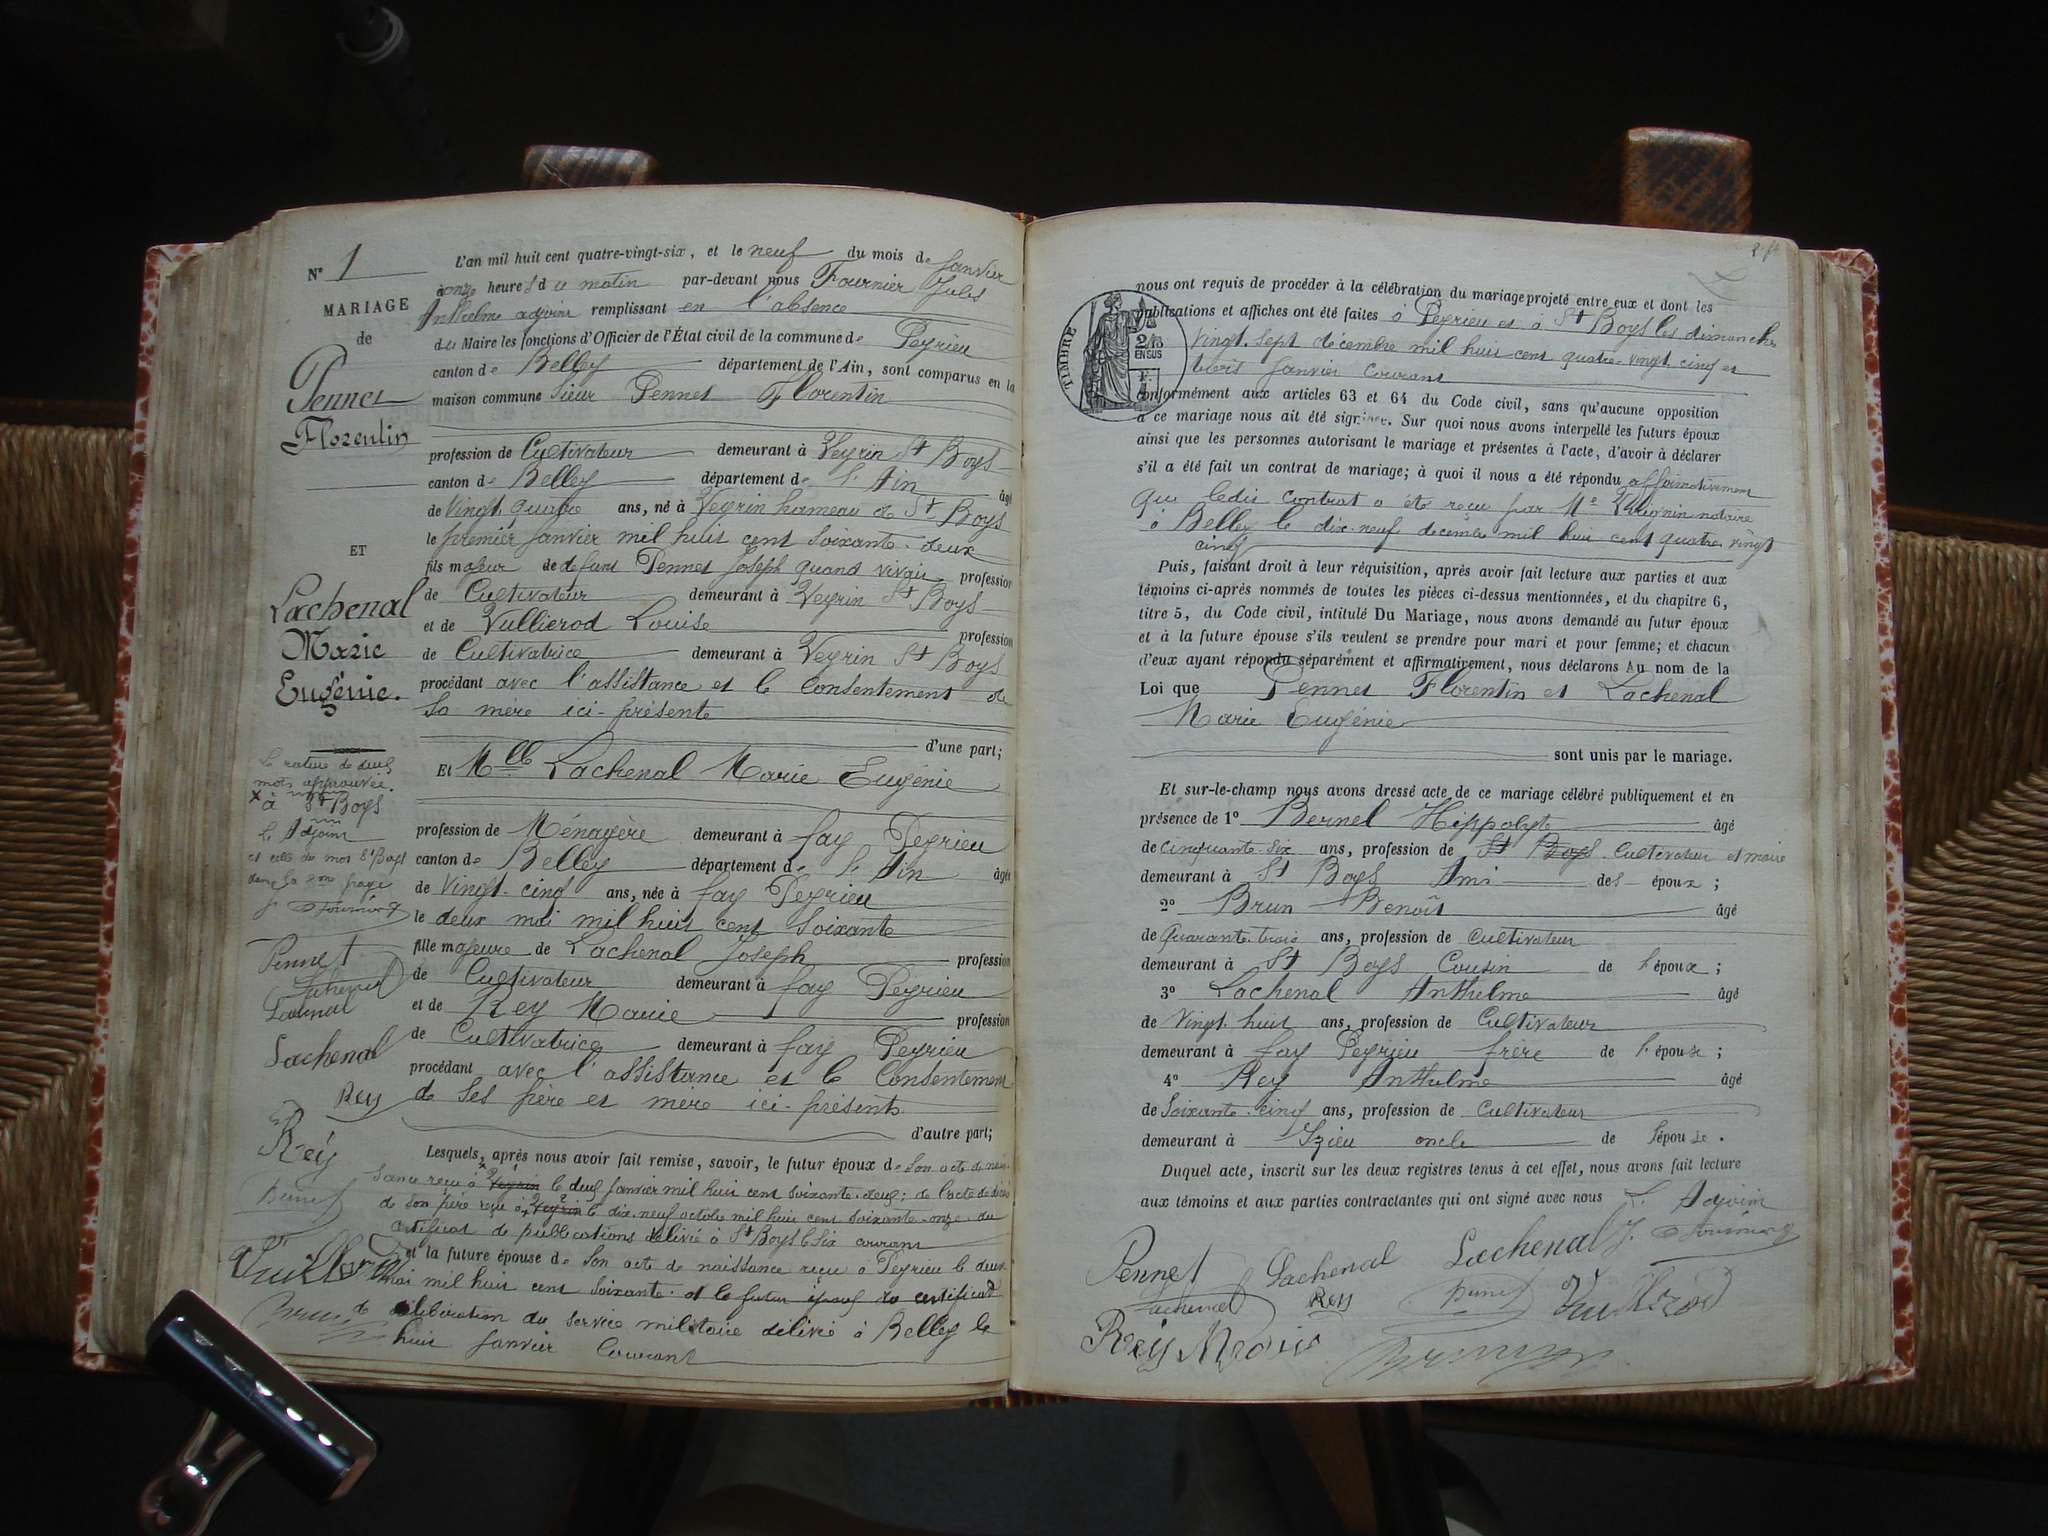 N° 1
MARIAGE
de
Pennet
Florentin
ET
Lachenal
Marie
Eugénie.
La rature de deux
mots approuvée.
x à St Boys
L'Adjoint
et celle du mot St Boys
dans la 2me page
J. Fournier
Pennet
Lachenal
Lachenal
Rey
Rey
L'an mil huit cent quatre-vingt-six, et le neuf du mois de Janvier
à onze heures du matin par-devant nous Fournier Jules
Anthelme adjoint remplissant en l'absence
du Maire les fonctions d'Officier de l'État civil de la commune de Peyrieu
canton de Belley département de l'Ain, sont comparus en la
maison commune Sieur Pennet Florentin
profession de Cultivateur demeurant à Veyrin St Boys
canton de Belley département de l'Ain âgé
de Vingt quatre ans, né à Veyrin hameau de St Boys
le premier Janvier mil huit cent Soixante-deux
fils majeur de defunt Pennet Joseph quand vivait profession
de Cultivateur demeurant à Veyrin St Boys
et de Vullierod Louise profession
de Cultivatrice demeurant à Veyrin St Boys
procédant avec l'assistance et le Consentement de
Sa mère ici-présente
d'une part;
Et Mlle Lachenal Marie Eugénie
profession de Ménagère demeurant à fay Peyrieu
canton de Belley département de l'Ain âgée
de Vingt-cinq ans, née à fay Peyrieu
le deux mai mil huit cent Soixante
fille majeure de Lachenal Joseph profession
de Cultivateur demeurant à fay Peyrieu
et de Rey Marie profession
de Cultivatrice demeurant à fay Peyrieu
procédant avec l'assistance et le Consentement
de Ses père et mère ici-présents
d'autre part;
Lesquels, après nous avoir fait remise, savoir, le futur époux de Son acte de nais-
sance reçu à x Veyrin le deux Janvier mil huit cent soixante-deux; de l'acte de décès
de Son père reçu à x Veyrin le dix-neuf octobre mil huit cent soixante-onze du
certificat de publications délivré à St Boys le Six courant
et la future épouse de Son acte de naissance reçu à Peyrieu le deux
Mai mil huit cent Soixante et le futur époux le certificat
de libération du service militaire délivré à Belley le
huit Janvier Courant
TIMBRE
EN SUS
nous ont requis de procéder à la célébration du mariage projeté entre eux et dont les
publications et affiches ont été faites à Peyrieu et à St Boys les dimanches
Vingt-Sept décembre mil huit cent quatre-vingt cinq et
trois Janvier Courant
conformément aux articles 63 et 64 du Code civil, sans qu'aucune opposition
à ce mariage nous ait été signifiée. Sur quoi nous avons interpellé les futurs époux
ainsi que les personnes autorisant le mariage et présentes à l'acte, d'avoir à déclarer
s'il a été fait un contrat de mariage; à quoi il nous a été répondu affirmativement
que ledit Contrat a été reçu par Me notaire
à Belley le dix-neuf décembre mil huit cent quatre vingt
cinq
Puis, faisant droit à leur réquisition, après avoir fait lecture aux parties et aux
témoins ci-après nommés de toutes les pièces ci-dessus mentionnées, et du chapitre 6,
titre 5, du Code civil, intitulé Du Mariage, nous avons demandé au futur époux
et à la future épouse s'ils veulent se prendre pour mari et pour femme; et chacun
d'eux ayant répondu séparément et affirmativement, nous déclarons Au nom de la
Loi que Pennet Florentin et Lachenal
Marie Eugénie
sont unis par le mariage.
Et sur-le-champ nous avons dressé acte de ce mariage célébré publiquement et en
présence de 1° Bernel Hippolyte âgé
de cinquante-six ans, profession de St Boys Cultivateur et maire
demeurant à St Boys Ami des époux;
2° Brun Benoît âgé
de Quarante-trois ans, profession de Cultivateur
demeurant à St Boys Cousin de l'époux;
3° Lachenal Anthelme âgé
de Vingt-huit ans, profession de Cultivateur
demeurant à fay Peyrieu frère de l'épouse;
4° Rey Anthelme âgé
de Soixante-cinq ans, profession de Cultivateur
demeurant à Izieu oncle de l'épouse.
Duquel acte, inscrit sur les deux registres tenus à cet effet, nous avons fait lecture
aux témoins et aux parties contractantes qui ont signé avec nous L'Adjoint
Pennet Lachenal Lachenal J. Fournier
Lachenal Rey
Rey Marie